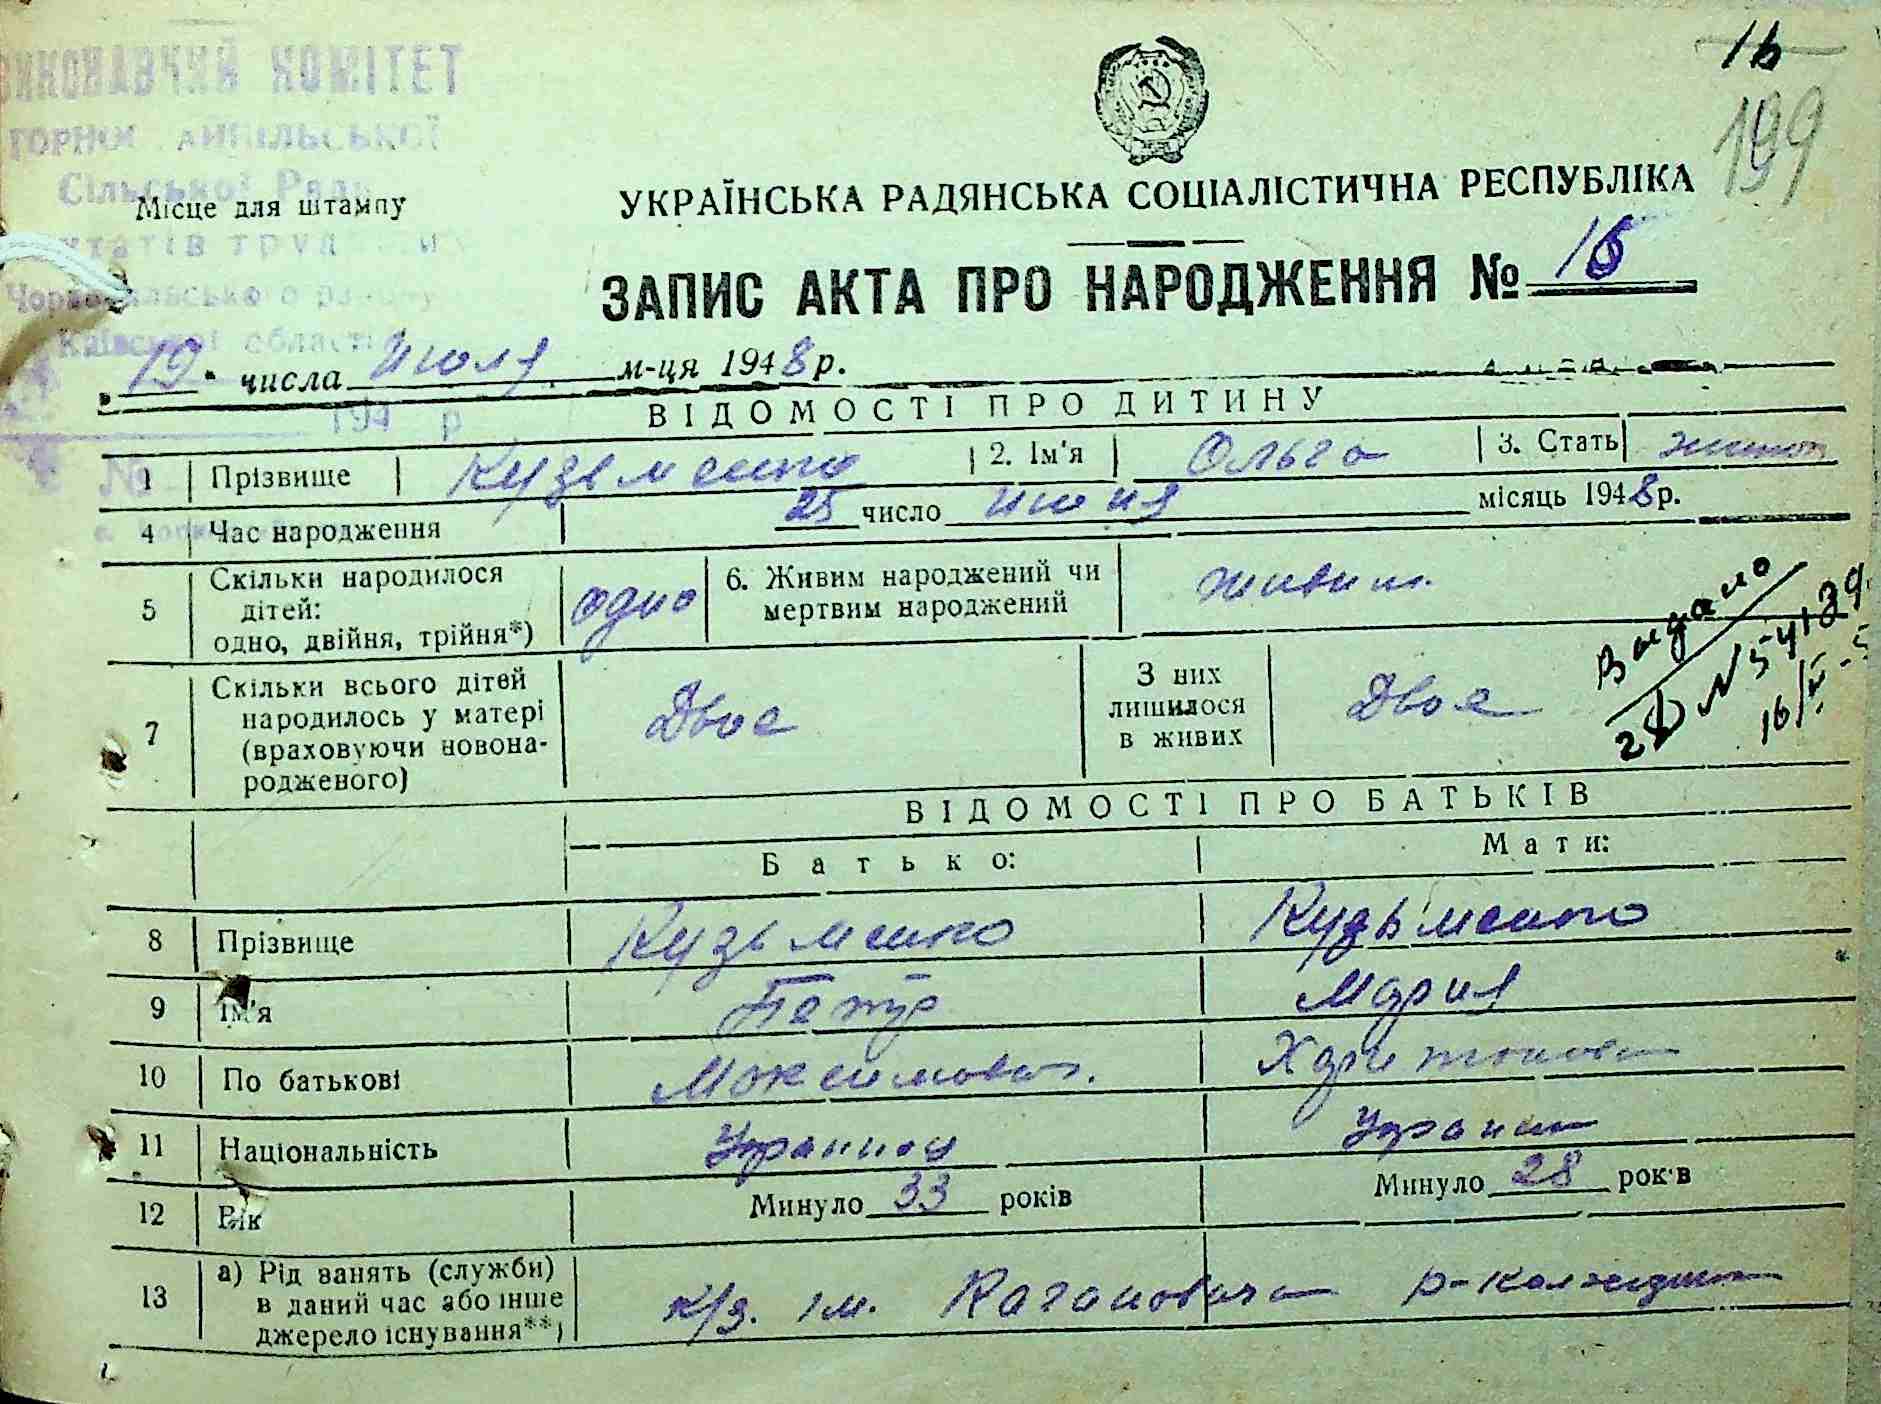 16
199
ВИКОНАВЧИЙ КОМІТЕТ
Сільської Ради
Місце для штампу
УКРАЇНСЬКА РАДЯНСЬКА СОЦІАЛІСТИЧНА РЕСПУБЛІКА
ЗАПИС АКТА ПРО НАРОДЖЕННЯ № 16
Київської області
19 числа июля м-ця 1948 р.
194 р
ВІДОМОСТІ ПРО ДИТИНУ
1 Прізвище Кузьменко 2. Ім'я Ольга 3. Стать
4 Час народження 25 число июня місяць 1948 р.
5 Скільки народилося дітей: одно, двійня, трійня*) одно 6. Живим народжений чи мертвим народжений живим
7 Скільки всього дітей народилось у матері (враховуючи новонародженого) Двое З них лишилося в живих Двое
Видано
16/
ВІДОМОСТІ ПРО БАТЬКІВ
Батько: Мати:
8 Прізвище Кузьменко Кузьменко
9 Ім'я Петро Мария
10 По батькові Максимович Харитоновн
11 Національність
12 Вік Минуло 33 років Минуло 28 років
13 а) Рід занять (служби) в даний час або інше джерело існування**) к/г. ім. Кагановича